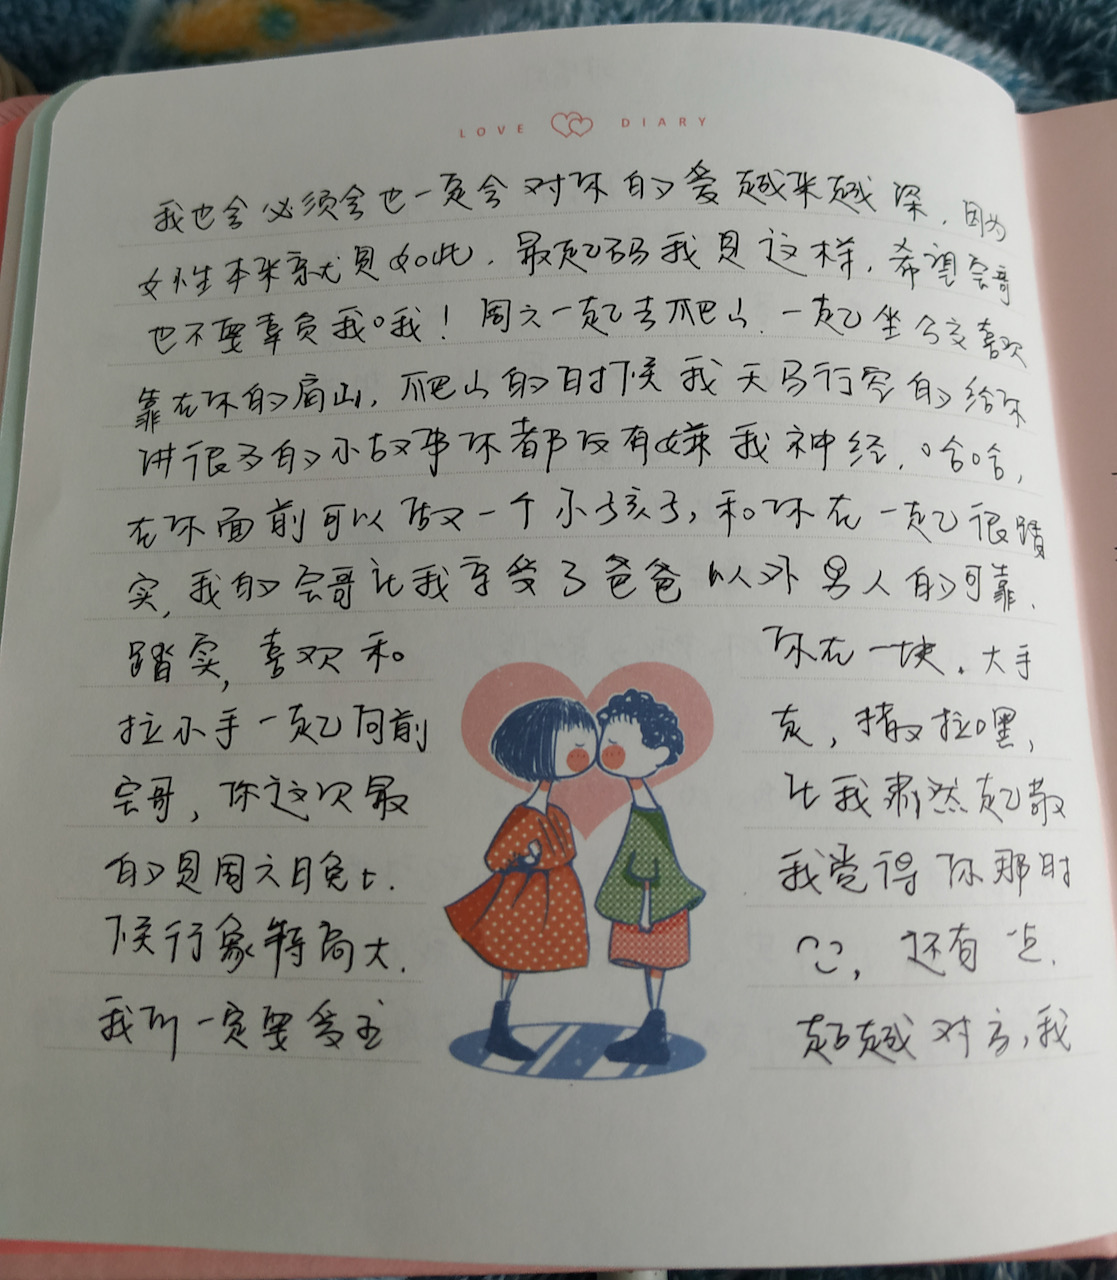 LOVE DIARY
我也会必须会也一定会对你的爱越来越深，因为
女性本来就是如此，最起码我是这样，希望会哥
也不要辜负我哦！周六一起去爬山，一起坐公交喜欢
靠在你的肩上，爬山的时候我天马行空的给你
讲很多的小故事你都没有嫌我神经，哈哈，
在你面前可以做一个小孩子，和你在一起很踏
实，我的会哥让我享受了爸爸以外男人的可靠，
踏实，喜欢和你在一块，大手
拉小手一起向前走，撒拉嘿，
会哥，你这次最让我肃然起敬
的是周六日晚上，我觉得你那时
候行象特高大，还有一点，
我们一定要爱过超越对方，我